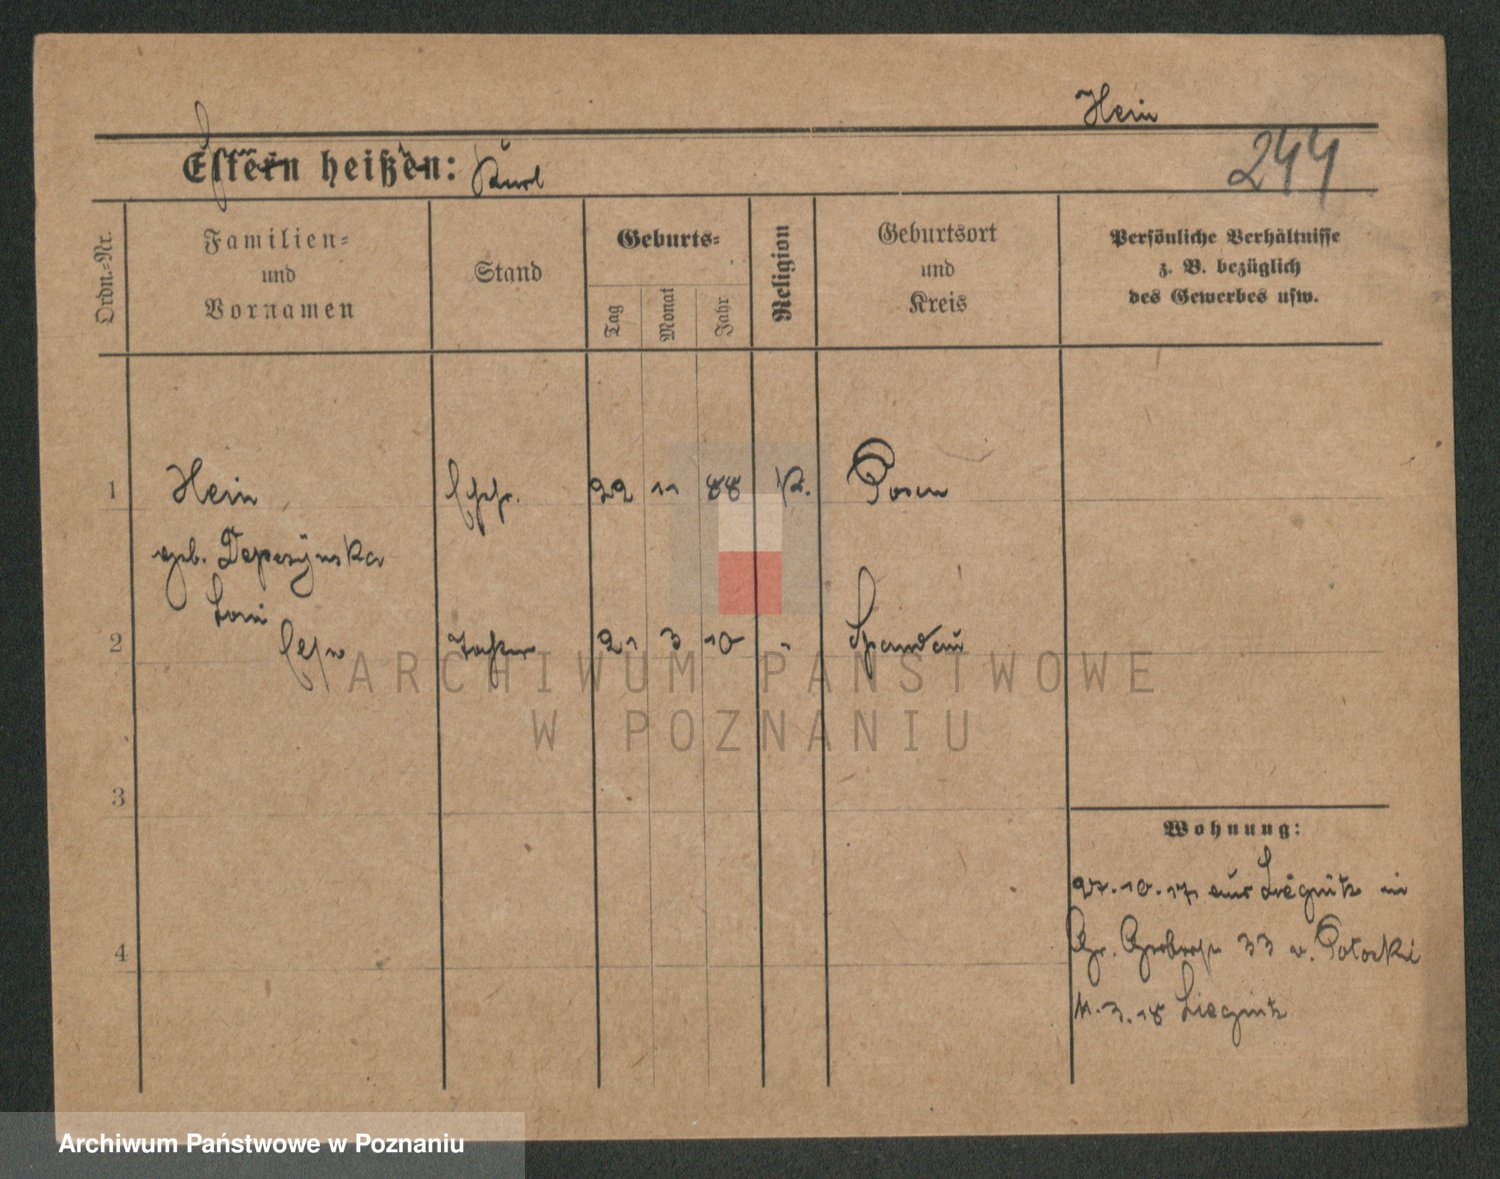 Hein
244
Eltern heißen: Kurl
Ordn.-Nr.
Familien-
und
Vornamen
Stand
Geburts-
Tag
Monat
Jahr
Religion
Geburtsort
und
Kreis
Persönliche Verhältnisse
z. B. bezüglich
des Gewerbes usw.
1 Hein Ehefr. 22 11 88 K. Posen
geb. Depczynska
Toni
2 Tochter 21 3 10 " Spandau
3
4
Wohnung:
27.10.17 aus Liegnitz in
Gr. Gerberstr 33 v. Potocki
11.3.18 Liegnitz
ARCHIWUM PAŃSTWOWE
W POZNANIU
Archiwum Państwowe w Poznaniu